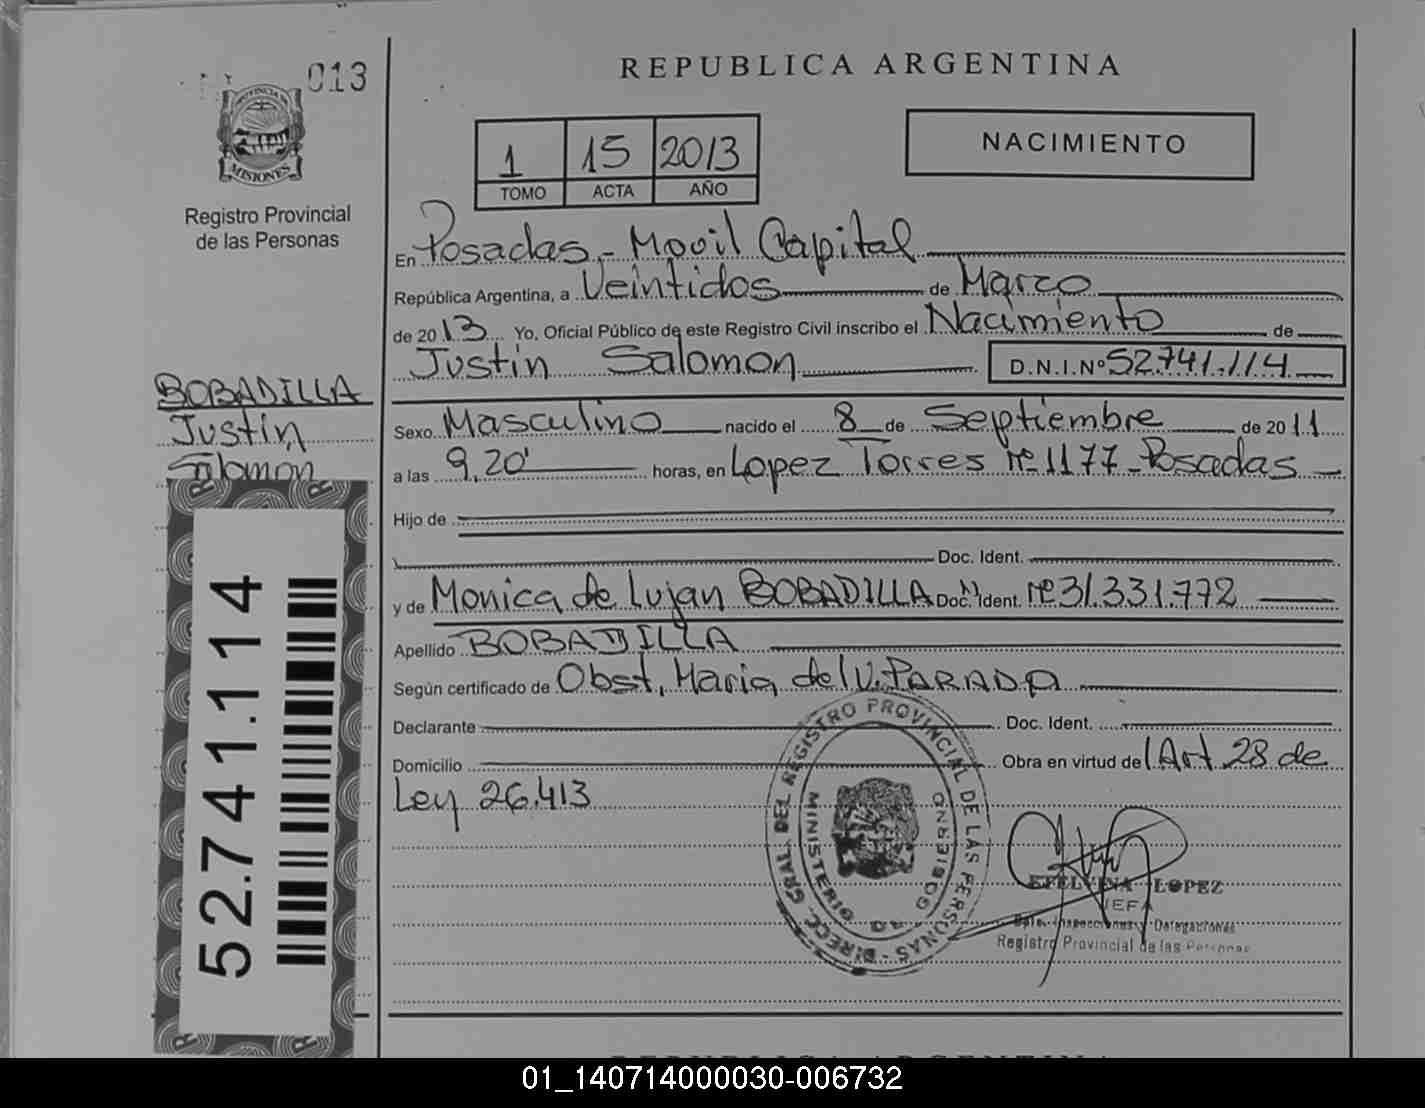 013
PROVINCIA DE
MISIONES
Registro Provincial
de las Personas
REPUBLICA ARGENTINA
1 15 2013
TOMO ACTA AÑO
NACIMIENTO
En Posadas - Movil Capital
República Argentina, a Veintidos de Marzo
de 2013 Yo, Oficial Público de este Registro Civil inscribo el Nacimiento de
Justin Salomon D.N.I.Nº 52.741.114
BOBADILLA
Justin
Salomon
Sexo Masculino nacido el 8 de Septiembre de 2011
a las 9,20' horas, en Lopez Torres nº 1177 - Posadas
Hijo de
Doc. Ident.
y de Monica de Lujan BOBADILLA Doc. Ident. Nº 31.331.772
Apellido BOBADILLA
Según certificado de Obst. Maria del V. PARADA
Declarante Doc. Ident.
Domicilio Obra en virtud del Art 28 de
Ley 26.413
52.741.114
DIRECC. GRAL. DEL REGISTRO PROVINCIAL DE LAS PERSONAS
MINISTERIO DE GOBIERNO
ETELVINA LOPEZ
JEFA
Dpto. Inspecciones y Delegaciones
Registro Provincial de las Personas
REPUBLICA ARGENTINA
01_140714000030-006732